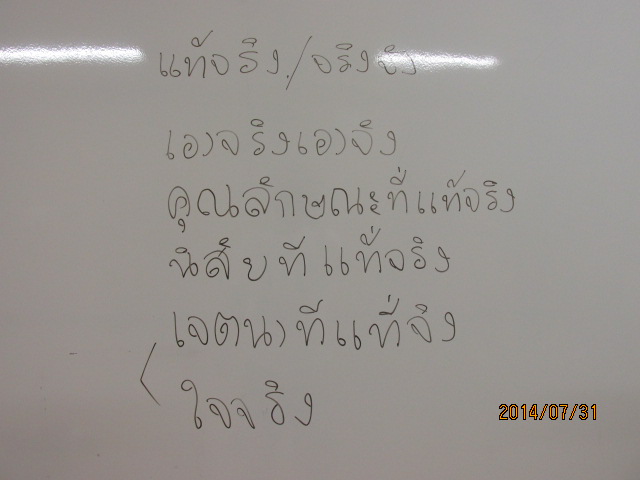 แท้จริง/จริงจัง
เอาจริงเอาจัง
คุณลักษณะที่แท้จริง
นิสัยที่แท้จริง
เจตนาที่แท้จริง
ใจจริง
2014/07/31